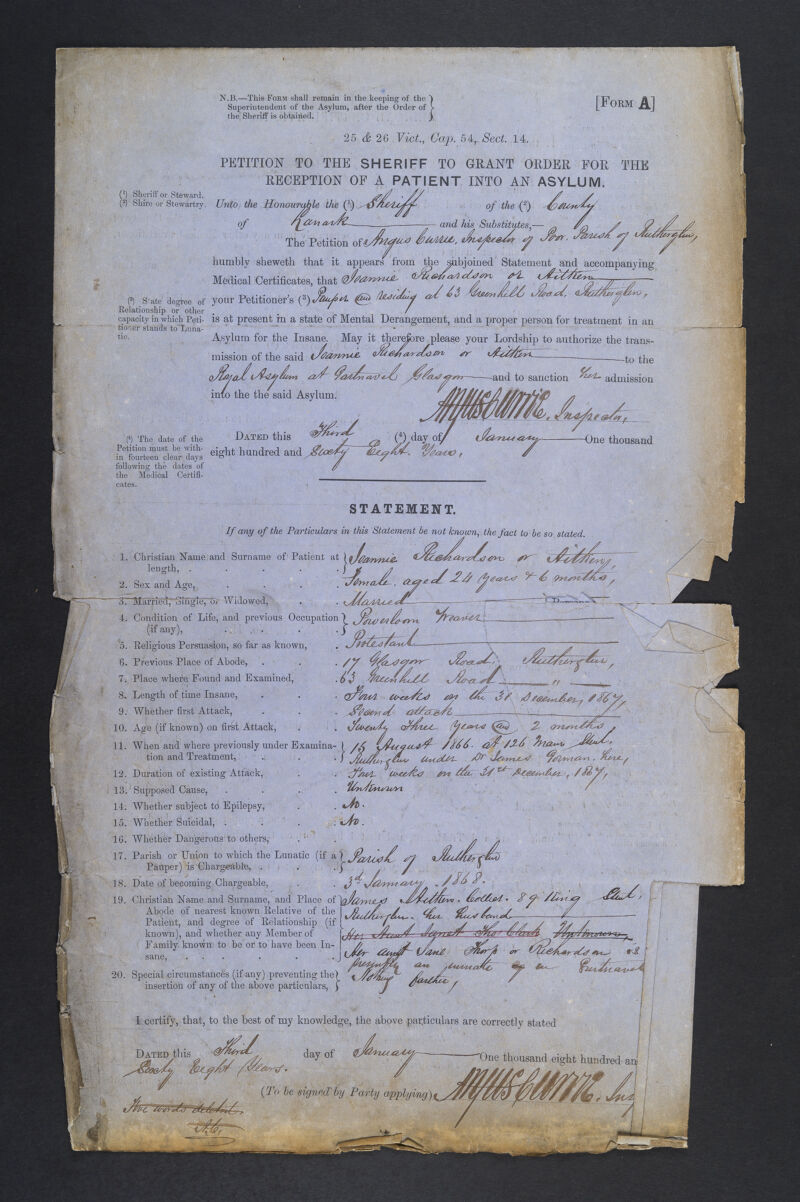 N.B.—This Form shall remain in the keeping of the
Superintendent of the Asylum, after the Order of
the Sheriff is obtained.
[Form A]
25 & 26 Vict., Cap. 54, Sect. 14.
PETITION TO THE SHERIFF TO GRANT ORDER FOR THE
RECEPTION OF A PATIENT INTO AN ASYLUM.
(1) Sheriff or Steward.
(2) Shire or Stewartry.
Unto the Honourable the (1) Sheriff of the (2) County
of Lanark and his Substitutes,—
The Petition of Angus Currie, Inspector of Poor, Parish of Rutherglen,
humbly sheweth that it appears from the subjoined Statement and accompanying
Medical Certificates, that Jeannie Richardson or Aitken
(3) State degree of
Relationship or other
capacity in which Peti-
tioner stands to Luna-
tic.
your Petitioner's (3) Pauper and residing at 63 Greenhill Road, Rutherglen,
is at present in a state of Mental Derangement, and a proper person for treatment in an
Asylum for the Insane. May it therefore please your Lordship to authorize the trans-
mission of the said Jeannie Richardson or Aitken to the
Royal Asylum at Gartnavel Glasgow and to sanction her admission
into the the said Asylum.
Angus Currie, Inspector,
(4) The date of the
Petition must be with-
in fourteen clear days
following the dates of
the Medical Certifi-
cates.
Dated this Third (4) day of January One thousand
eight hundred and Sixty Eight Years,
STATEMENT.
If any of the Particulars in this Statement be not known, the fact to be so stated.
1. Christian Name and Surname of Patient at
length, . Jeannie Richardson or Aitken,
2. Sex and Age, Female aged 24 years & 6 months,
3. Married, Single, or Widowed, Married
4. Condition of Life, and previous Occupation
(if any), Powerloom Weaver
5. Religious Persuasion, so far as known, Protestant
6. Previous Place of Abode, 17 Glasgow Road, Rutherglen,
7. Place where Found and Examined, 63 Greenhill Road "
8. Length of time Insane, Four weeks on the 31 December, 1867,
9. Whether first Attack, Second attack
10. Age (if known) on first Attack, Twenty Three Years and 2 months
11. When and where previously under Examina-
tion and Treatment, 15 August 1866. at 126 Main Street,
Rutherglen under Dr James Gorman. here,
12. Duration of existing Attack, Four weeks on the 31st December, 1867,
13. Supposed Cause, Unknown
14. Whether subject to Epilepsy, No.
15. Whether Suicidal, No.
16. Whether Dangerous to others,
17. Parish or Union to which the Lunatic (if a
Pauper) is Chargeable, Parish of Rutherglen
18. Date of becoming Chargeable, 3d January 1868.
19. Christian Name and Surname, and Place of
Abode of nearest known Relative of the
Patient, and degree of Relationship (if
known), and whether any Member of
Family known to be or to have been In-
sane,
James Aitken. Collier. 89 King Street,
Rutherglen. her Husband
Her Aunt Clark Unknown,
Her aunt Jane Thorp or Richardson is
presently an inmate in Gartnavel
20. Special circumstances (if any) preventing the
insertion of any of the above particulars, Nothing farther,
I certify, that, to the best of my knowledge, the above particulars are correctly stated
Dated this Third day of January One thousand eight hundred an
Sixty Eight Years.
(To be signed by Party applying) Angus Currie. Ins
Five words deleted.
A.C.